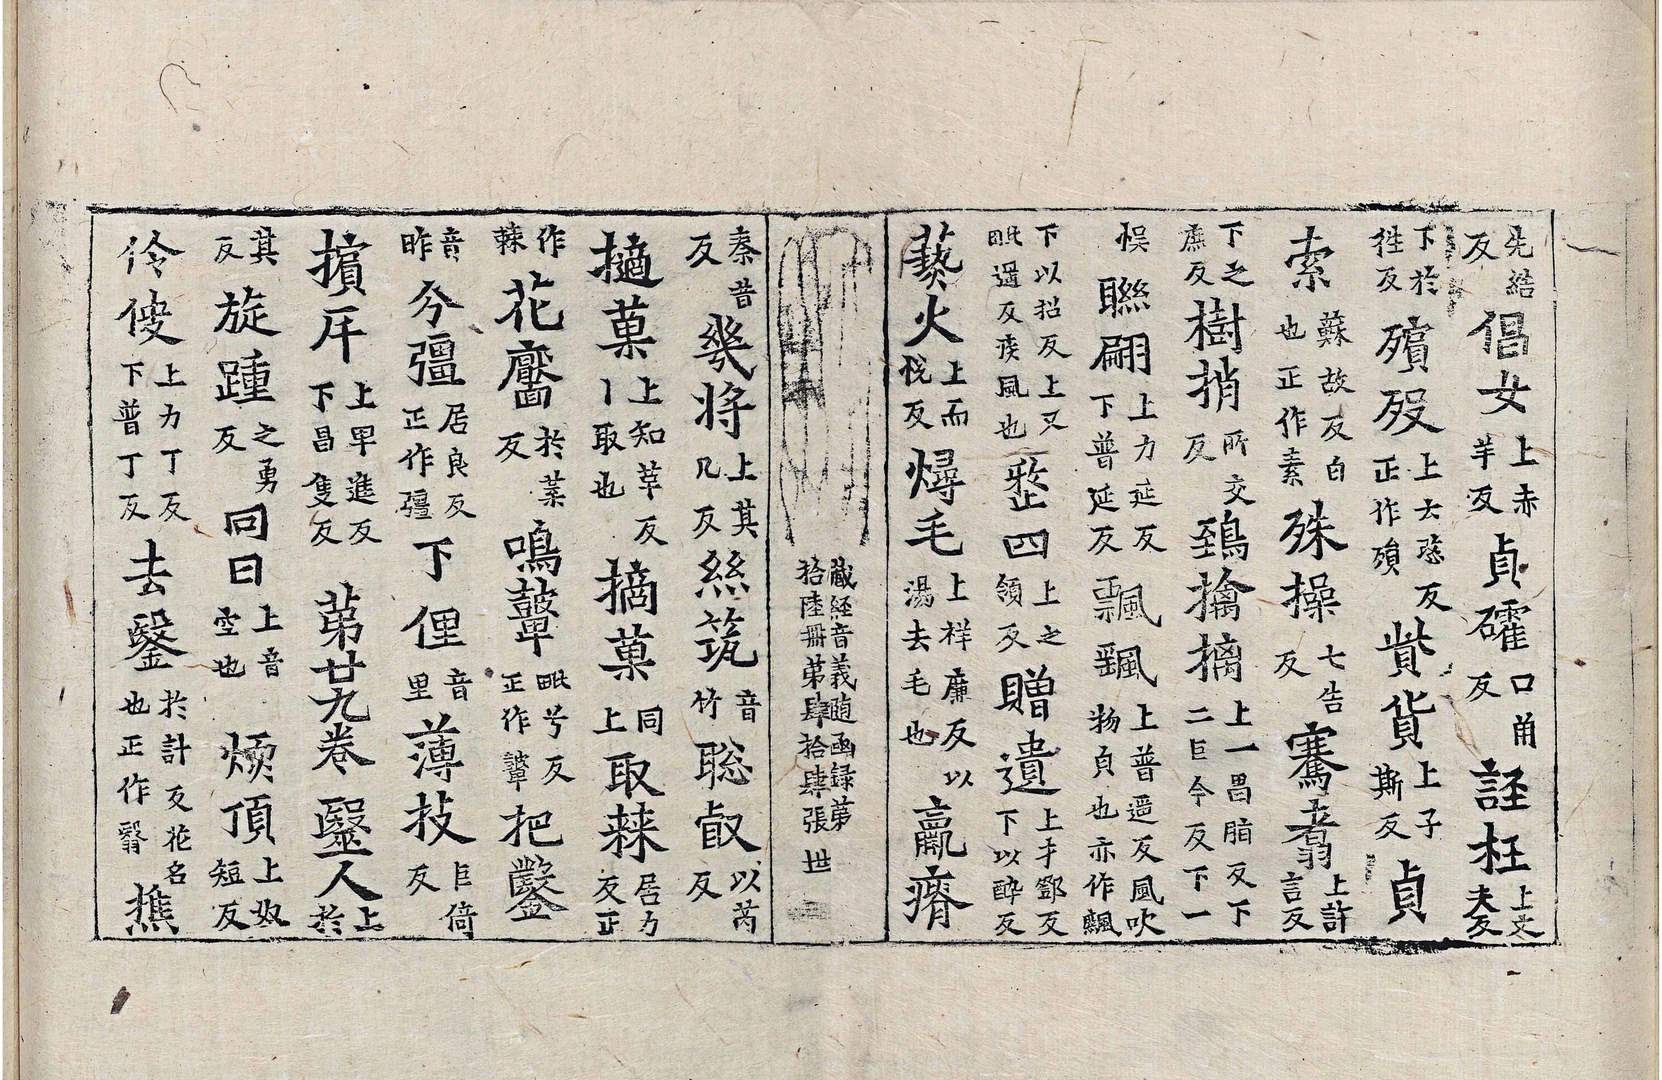 先結反倡女上赤羊反貞礭口角反詿枉上文夫反
下於往反殯歿上去慇反正作殞貲貨上子斯反貞
索蘇故反白也正作素殊操七告反騫翥上許言反
下之庶反樹捎所交反鵄擒摛上一昌脂反下二巨今反下一
悮聯翩上力延反下普延反飄颻上普遥反風吹物皃也亦作飃
下以招反上又毗遥反疾風也整四上之領反贈遺上手鄧反下以醉反
爇火上而悅反燖毛上祥廉反以湯去毛也羸瘠
藏經音義随函録第拾陸冊第肆拾肆張 世
秦昔反幾將上其几反絲筑音竹聡叡以芮反
擿菓上知革反丨取也摘菓同上取棘居力反正
作棘花黶於葉反鳴鼙毗兮反正作鼙把鑿
音昨今彊居良反正作彊下俚音里薄技巨倚反
擯斥上畢進反下昌隻反第廿九卷毉人上於
其反旋踵之勇反冋曰上音空也煩頂上奴短反
伶俜上力丁反下普丁反去毉於計反花名也正作翳樵